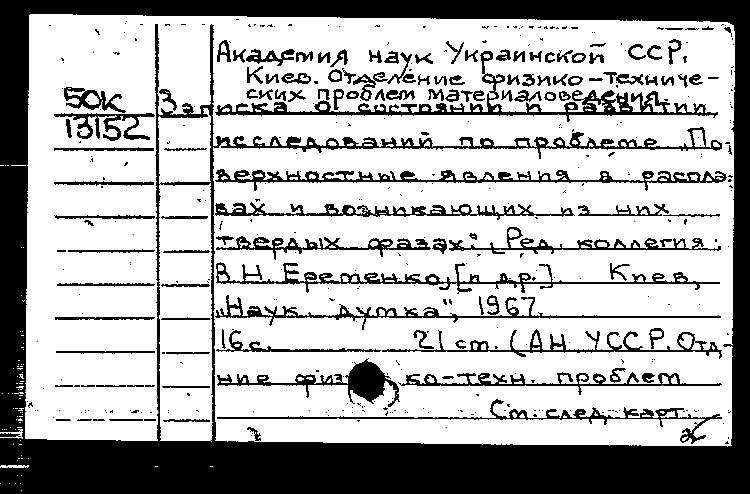 Академия наук Украинской ССР.
Киев. Отделение физико-техниче-
ских проблем материаловедения.
50К Записка о состоянии и развитии
13152
исследований по проблеме „По-
верхностные явления в распла-
вах и возникающих из них
твердых фазах". [Ред. коллегия:
В.Н. Еременко, [и др.]. Киев,
„Наук. думка", 1967.
16с. 21 см. (АН УССР. Отд-
ние физико-техн. проблем
См. след. карт.